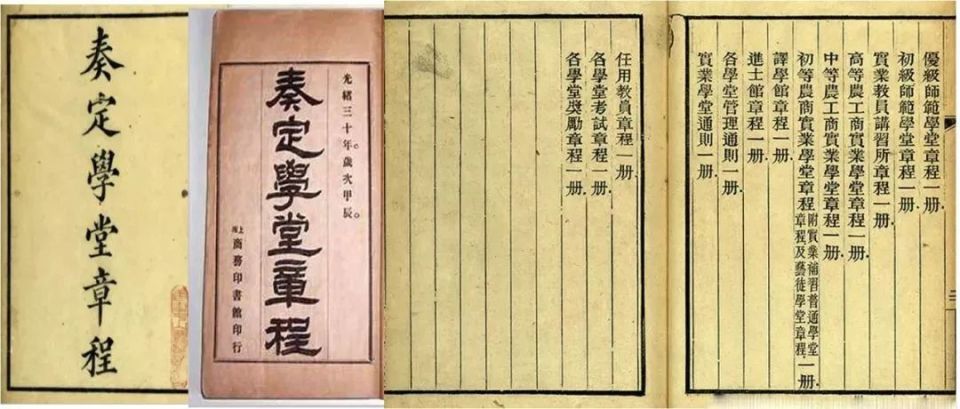 奏定學堂章程
光緒三十年歲次甲辰
奏定學堂章程
上海商務印書館印行
優級師範學堂章程一册
初級師範學堂章程一册
實業教員講習所章程一册
高等農工商實業學堂章程一册
中等農工商實業學堂章程一册
初等農商實業學堂章程附實業補習普通學堂章程及藝徒學堂章程一册
譯學館章程一册
進士館章程一册
各學堂管理通則一册
實業學堂通則一册
任用教員章程一册
各學堂考試章程一册
各學堂奬勵章程一册
二